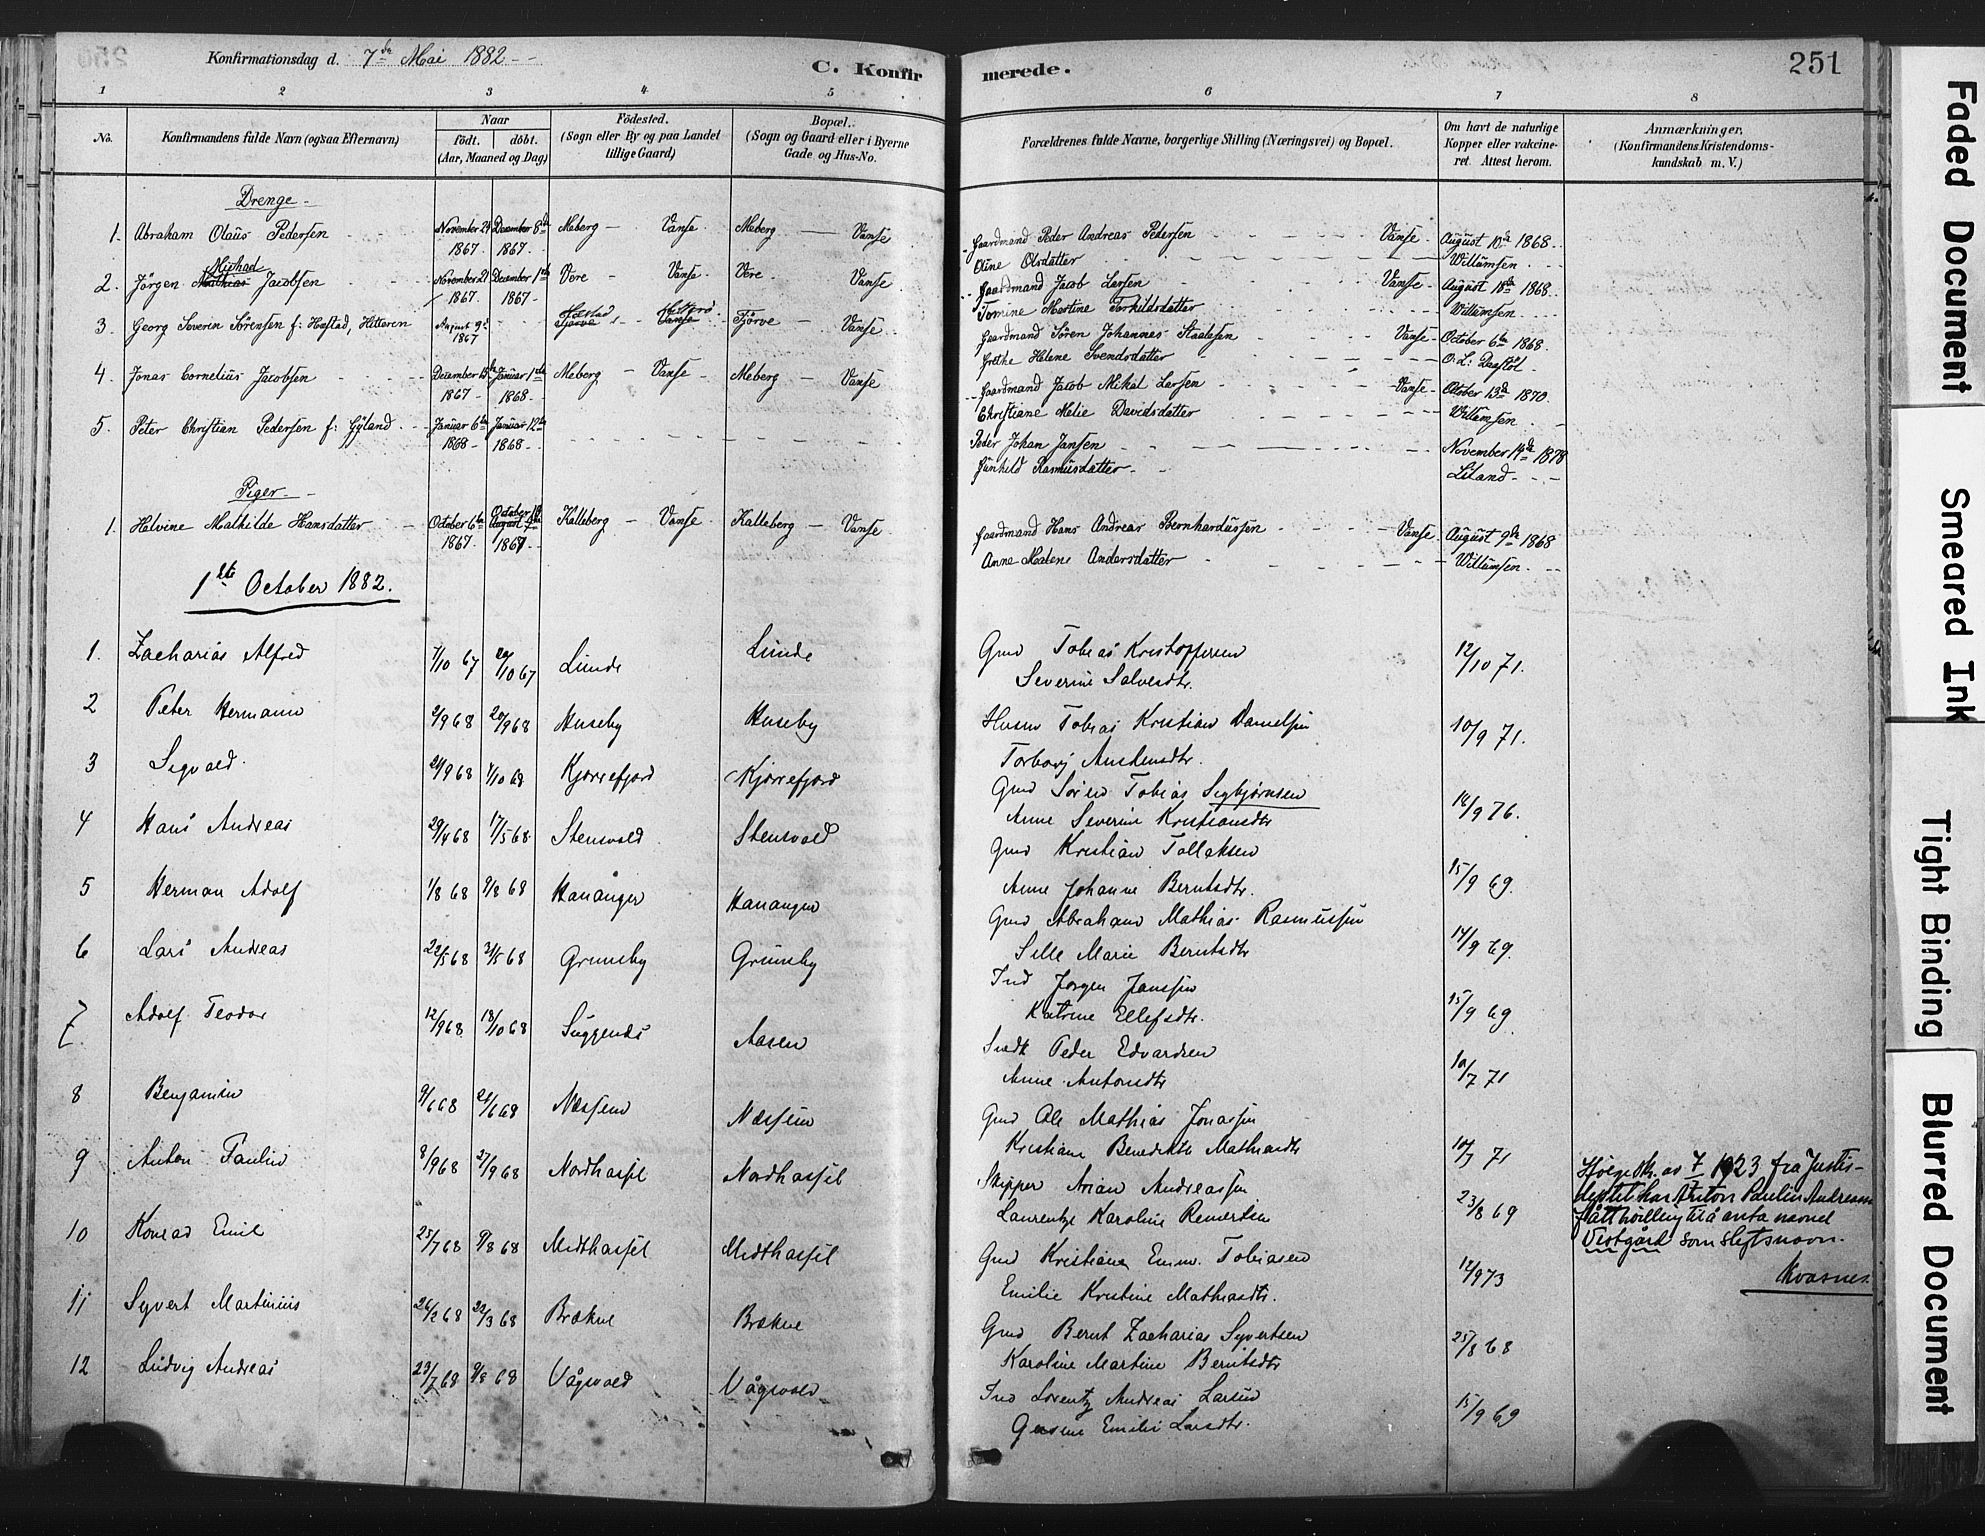 Konfirmationsdag d. 7de Mai 1882
C. Konfirmerede.
251
1 2 3 4 5 6 7 8
No.
Konfirmandens fulde Navn (ogsaa Efternavn)
Naar
födt. döbt.
(Aar, Maaned og Dag)
Födested.
(Sogn eller By og paa Landet
tillige Gaard)
Bopæl.
(Sogn og Gaard eller i Byerne
Gade og Hus-No.
Forældrenes fulde Navne, borgerlige Stilling (Næringsvei) og Bopæl.
Om havt de naturlige
Kopper eller vakcine-
ret. Attest herom.
Anmærkninger.
(Konfirmandens Kristendoms-
kundskab m. V.)
Drenge
1. Abraham Olaüs Pedersen November 1867 December 8de 1867 Meberg - Vanse Meberg - Vanse Gaardmand Peder Andreas Pedersen Vanse August 10de 1868.
Oline Olsdatter Willumsen
2. Jörgen Mathias Jacobsen November 21 1867 December 1ste 1867 Vere - Vanse Vere Vanse Gaardmand Jacob Larsen Vanse August 1868
Tomine Martine Torkildsdatter Willumsen
3. Georg Severin Sørensen f: Hitteren August 9de 1867 Tjörve Vanse Tjörve - Vanse Gaardmand Sören Johannes Staalesen Vanse October 6te 1868.
Grethe Helene Svendsdatter
4. Jonas Cornelius Jacobsen December 1867 Januar 1ste 1868 Meberg - Vanse Meberg - Vanse Gaardmand Jacob Mikal Larsen Vanse October 13de 1870.
Christiane Melie Davidsdatter Willumsen
5. Peter Christian Pedersen f: Gyland Januar 6te 1868 Januar 12te 1868 Peder Johan Jansen November 14de 1878
Gunhild Rasmusdatter
Piger
1. Helvine Mathilde Hansdatter October 6te 1867 October 1867 Kalleberg - Vanse Kalleberg - Vanse Gaardmand Hans Andreas Bernhardussen Vanse August 9de 1868
Anne Malene Andersdatter Willumsen
1ste October 1882.
1. Zacharias Alfred 7/10 67 20/10 67 Lunde Lunde Gmd Tobias Kristoffersen 12/10 71.
Severine Salvesdtr.
2 Peter Hermann 2/9 68 20/9 68 Huseby Huseby Husm Tobias Kristian Danielsen 10/9 71.
Torborg
3 Sigvald 24/9 68 Kjørrefjord Kjørrefjord Gmd Søren Tobias Sigbjørnsen 18/9 76.
Anne Severine Kristiansdtr
4 Hans Andreas 29/4 68 17/5 68 Stensvold Stensvold Gmd Kristian Tollaksen 15/9 69.
Anne Johanne Berntsdtr.
5 Herman Adolf 1/8 68 9/8 68 Hananger Hananger Gmd Abraham Mathias Rasmussen 14/9 69.
Sille Marie Berntsdtr
6 Lars Andreas 22/5 68 31/5 68 Grunsby Grunsby Ind Jørgen Janssen 15/9 69
Katrine Ellefsdtr.
7 Adolf Teodor 12/9 68 18/10 68 Suggends Aasen Peder Edvardsen 10/7 71
Anne Antonsdtr
8 Benjamin 9/6 68 21/6 68 Næssem Næssem Gmd Ole Mathias Jonassen 10/7 71
Kristiane Benedikte Mathiasdtr
9 Anton Paulin 8/9 68 27/9 68 Nordhassel Nordhassel Skipper Arian Andreassen 23/8 69
Laurentze Karoline Reinertsen
Ifølge skr. av 7/7 1923 fra Justis-
deptet har Anton Paulin Andreassen
fått bevilling til å anta navnet
Vestgård som slektsnavn.
Kvasnes.
10 Konrad Emil 25/7 68 9/8 68 Midthassel Midthassel Gmd Kristian Eman. Tobiasen 12/9 73
Emilie Kristine Mathiasdtr.
11 Syvert Martinius 26/2 68 22/3 68 Brække Brække Gmd Bernt Zacharias Syvertsen 25/8 68
Karoline Martine Berntsdtr
12 Ludvig Andreas 29/7 68 9/8 68 Vågsvold Vågsvold Ind Lorentz Andreas Larsen 15/9 69
Emilie Larsdtr.
Faded Document
Smeared Ink
Tight Binding
Blurred Document